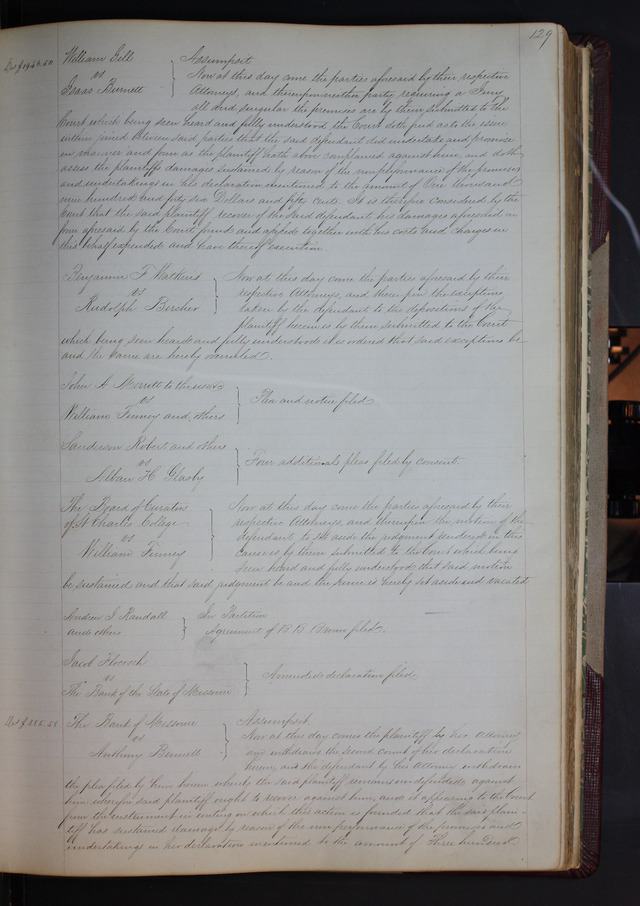 129
William Gill
vs
Isaac Burnett
Assumpsit
Now at this day come the parties aforesaid by their respective
Attorneys, and thereupon neither party requiring a Jury
all and singular the premises are by them submitted to the
Court which being seen heard and fully understood, the Court doth find as to the issue
within joined between said parties that the said defendant did undertake and promise
in manner and form as the plaintiff hath above complained against him, and doth
assess the plaintiffs damages sustained by reason of the nonperformance of the promises
and undertakings in his declaration mentioned to the amount of One thousand
nine hundred and fifty six Dollars and fifty cents. It is therefore considered by the
Court that the said plaintiff recover of the said defendant his damages aforesaid in
form aforesaid by the Court found and assessed together with his costs and charges in
this behalf expended and have thereof execution.
Benjamin F Watkins
vs
Rudolph Bircher
Now at this day come the parties aforesaid by their
respective Attorneys, and thereupon the exceptions
taken by the defendant to the depositions of the
plaintiff herein is by them submitted to the Court
which being seen heard and fully understood it is ordered that said exceptions be
and the same are hereby overruled.
John A Merritt to the use &c
vs
William Finney and others
Plea and notice filed
Sanderson Robert and others
vs
Alban H Glasby
Four additional pleas filed by consent.
The Board of Curators
of St Charles College
vs
William Finney
Now at this day come the parties aforesaid by their
respective Attorneys, and thereupon the motion of the
defendant to set aside the judgment rendered in this
cause is by them submitted to the Court which being
seen heard and fully understood that said motion
be sustained and that said judgment be and the same is hereby set aside and vacated
Andrew J Randall
and others
In Partition
Agreement of B B Brown filed.
Jacob
vs
The Bank of the State of Missouri
Amended declaration filed
The Bank of Missouri
vs
Anthony Bennett
Assumpsit
Now at this day comes the plaintiff by her attorney
and withdraws the second count of her declaration
herein, and the defendant by his attorney withdraws
the plea filed by him herein whereby the said plaintiff remains undefended against
him, wherefore said plaintiff ought to recover against him, and it appearing to the Court
from the instrument in writing on which this action is founded that the said plain-
tiff has sustained damage by reason of the non performance of the promises and
undertakings in her declaration mentioned to the amount of Three hundred